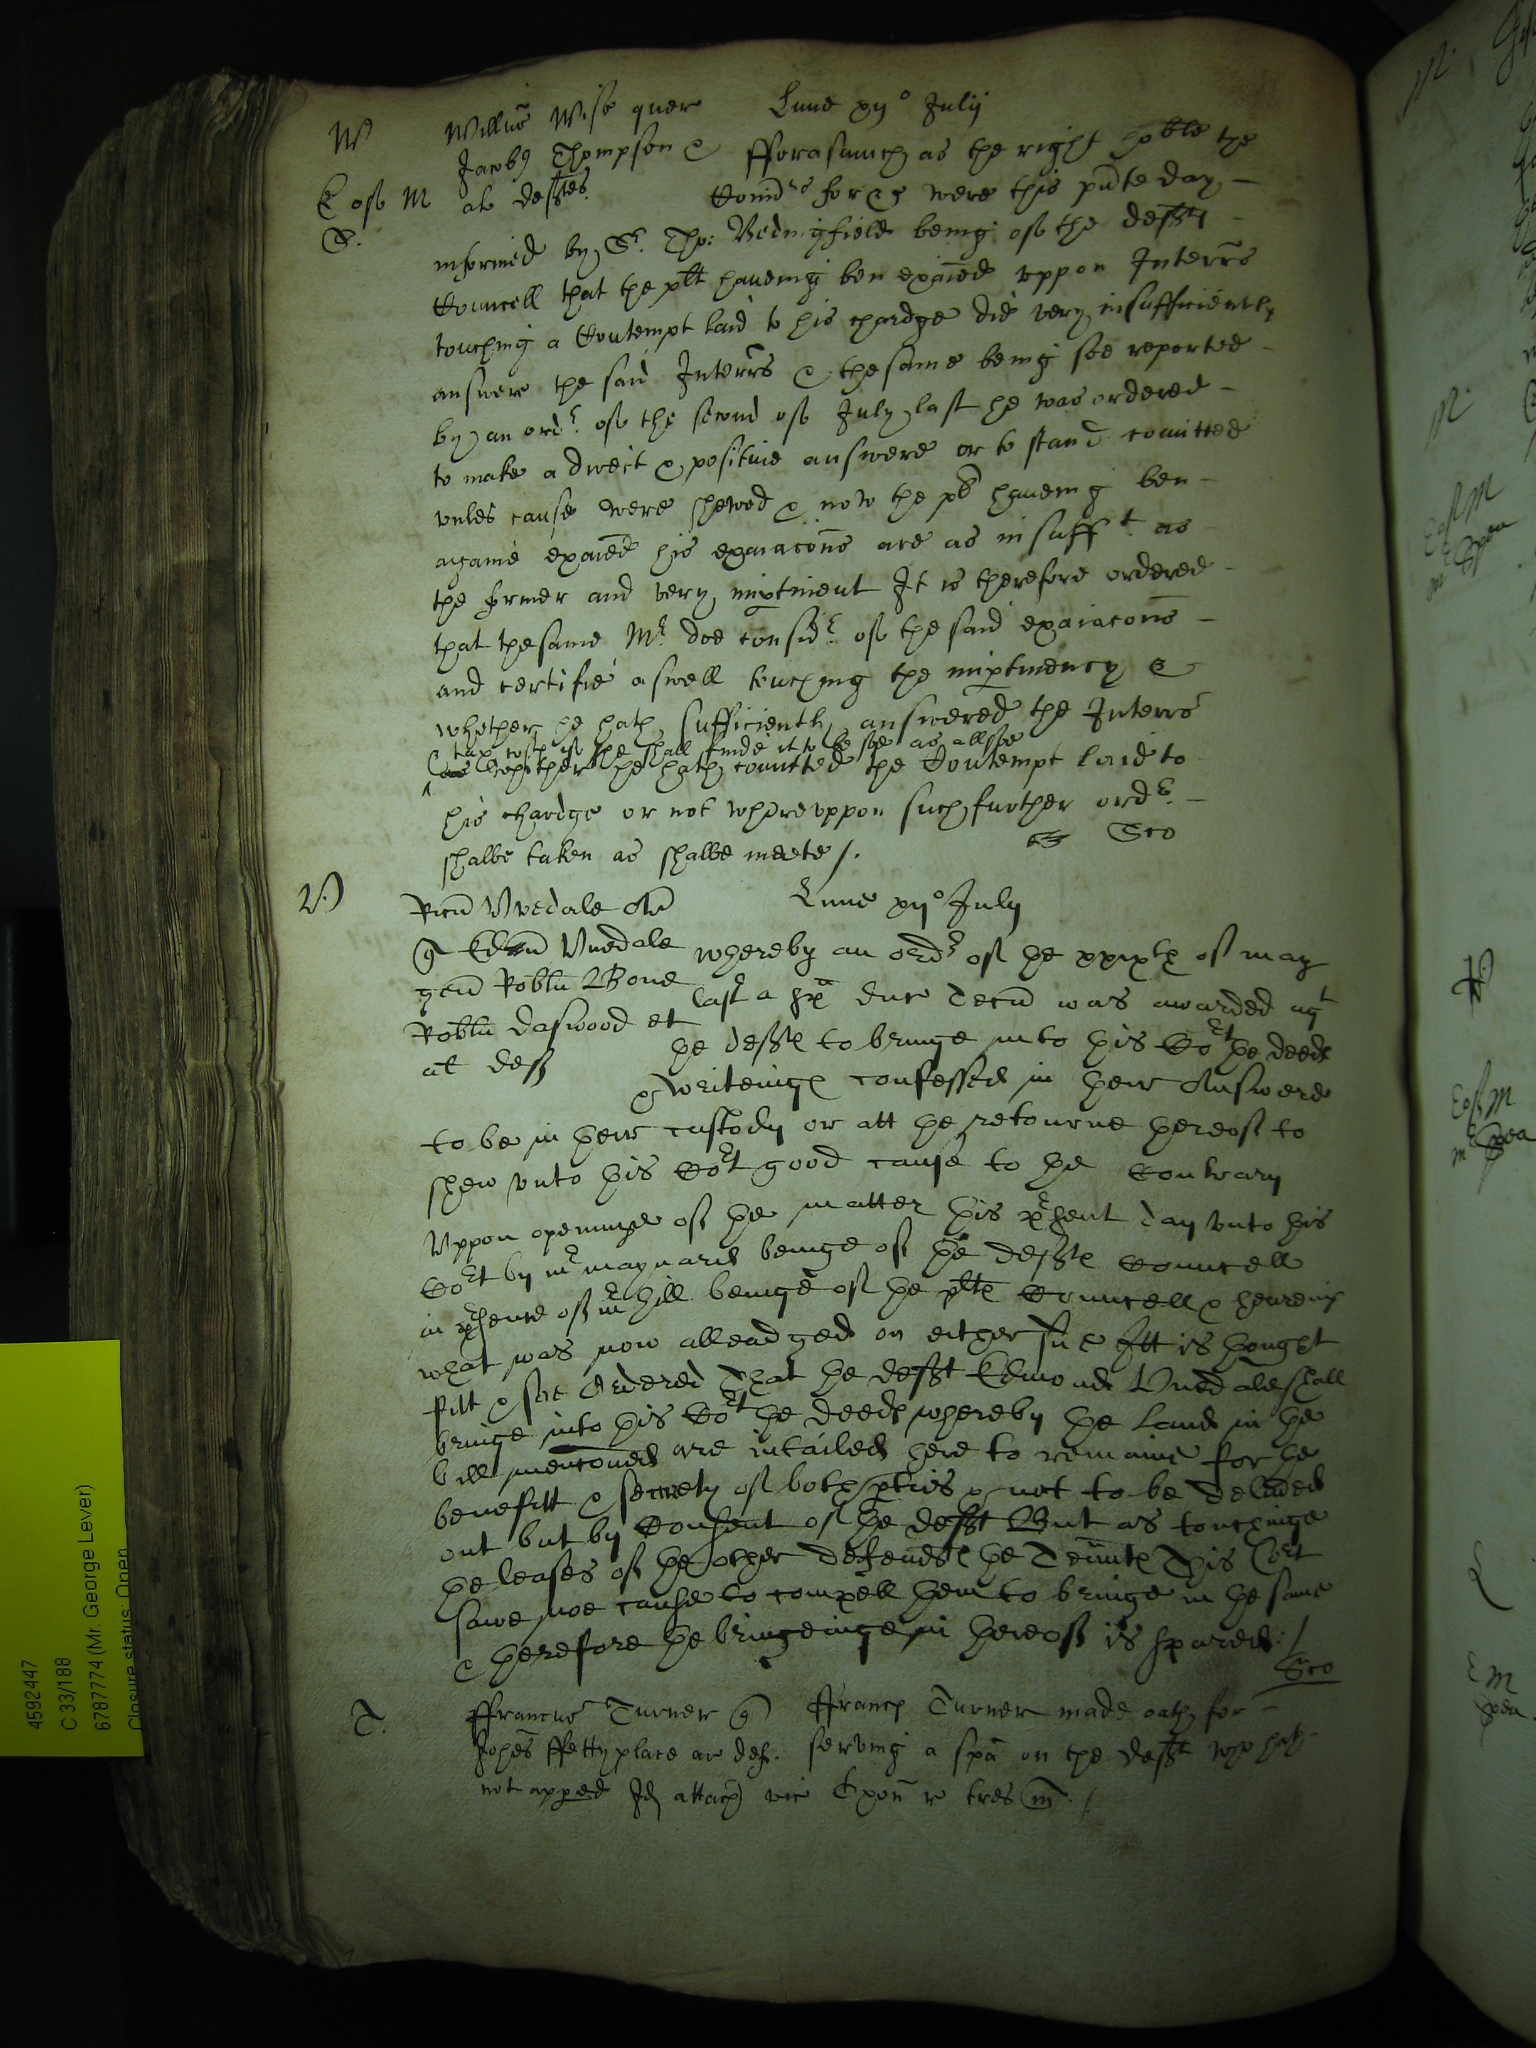 W Willus Wise quer Lune xij° Julij
Jacobs Thompson & fforasmuch as the right hoble the
E of M al deftes. Comrs for &c were this pnte day
S. informed by Sr. Tho: Bedingfield being of the defts
Councell that the plt haveing ben exaied uppon Interrs
touching a Contempt laid to his chardge did very insufficiently
answere the said Interrs & the same being soe reported
by an ordr. of the second of July last he was ordered
to make a direct & positive answere or to stand comitted
unles cause were shewed & now the plt haveing ben
againe exaied his exaiacons are as insufft as
the former and very imptinent It is therefore ordered
that the same Mr. doe considr. of the said exaiacons
and certifie aswell touching the imptinency &
whether he hath sufficiently answered the Interrs
tax costs if he shall finde it to be soe as allsoe
whether he hath comitted the Contempt laid to
his chardge or not whereuppon such further ordr.
shalbe taken as shalbe meete /. Sco
V Ricus Uvedale Ar Lune xij° July
q Edmu Uvedale whereby an ordr of the xxixth of may
gen Robtu Bone last a spa duc tecu was awarded agt
Robtu Daswood et the defts to bringe into this Cort the deeds
al def & writeings confessed in their Answere
to be in their custody or att the retourne thereof to
shew unto this Cort good cause to the Contrary
Uppon openinge of the matter this present day unto this
Cort by mr maynard beinge of the defts Councell
in presence of mr hill beinge of the plts Councell & heareing
what was now alleadged on either side Itt is thought
fitt & soe Ordered That the deft Edmond Uvedale shall
bringe into this Cort the deeds whereby the Lands in the
bill menconed are intailed there to remaine for the
benefitt & securety of both pties & not to be delivered
out but by Consent of the deft But as touchinge
the leases of the other defends the Tennts This Cort
sawe noe cause to compell them to bringe in the same
& therefore the bringeinge in thereof is spared /
Sco
T. ffrancus Turner q ffrancs Turner made oath for
Johes ffettyplace ar def. serving a spa on the deft who hath
not apped Id attach vic Oxon r tres m /.
4592447
C 33/188
6787774 (Mr. George Lever)
Closure status: Open